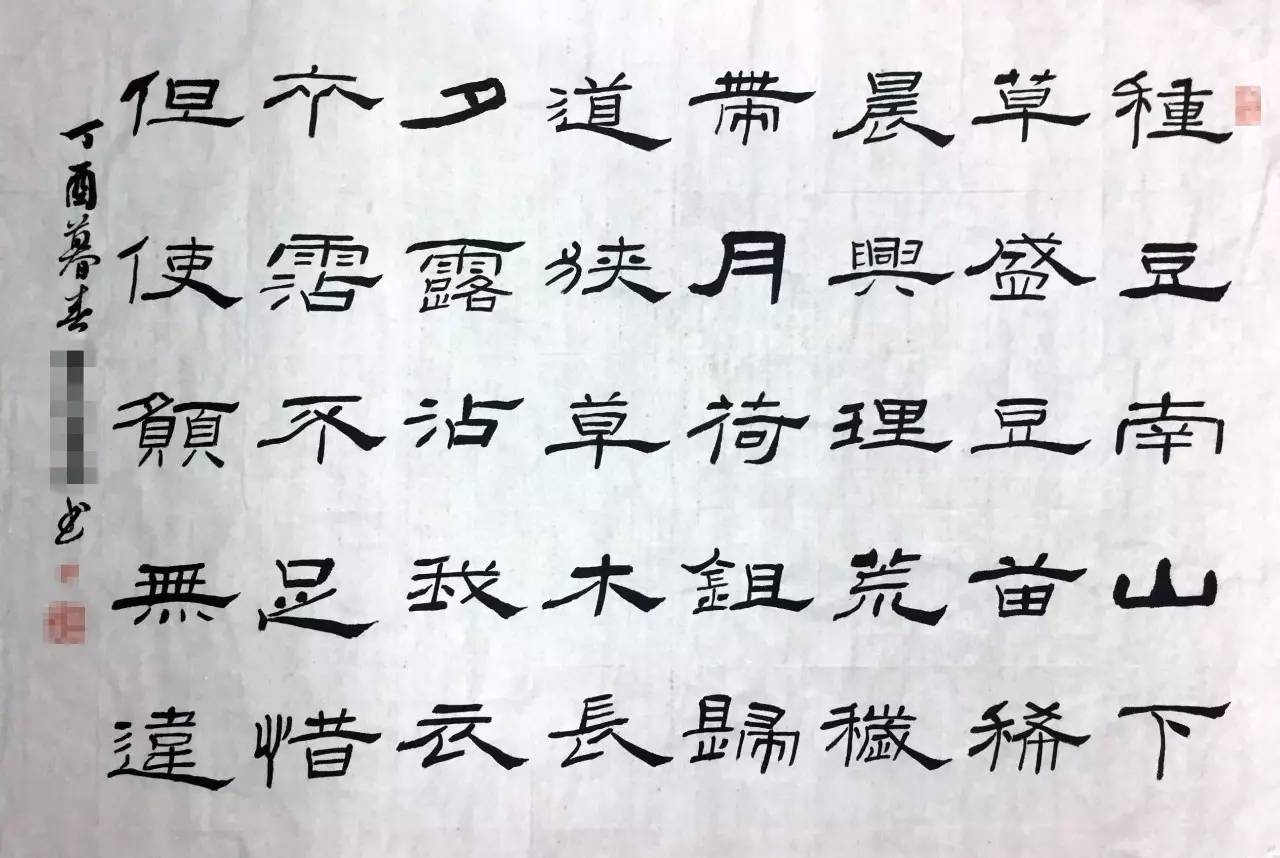 種豆南山下
草盛豆苗稀
晨興理荒穢
帶月荷鉏歸
道狹草木長
夕露沾我衣
衣霑不足惜
但使願無違
丁酉暮春
书